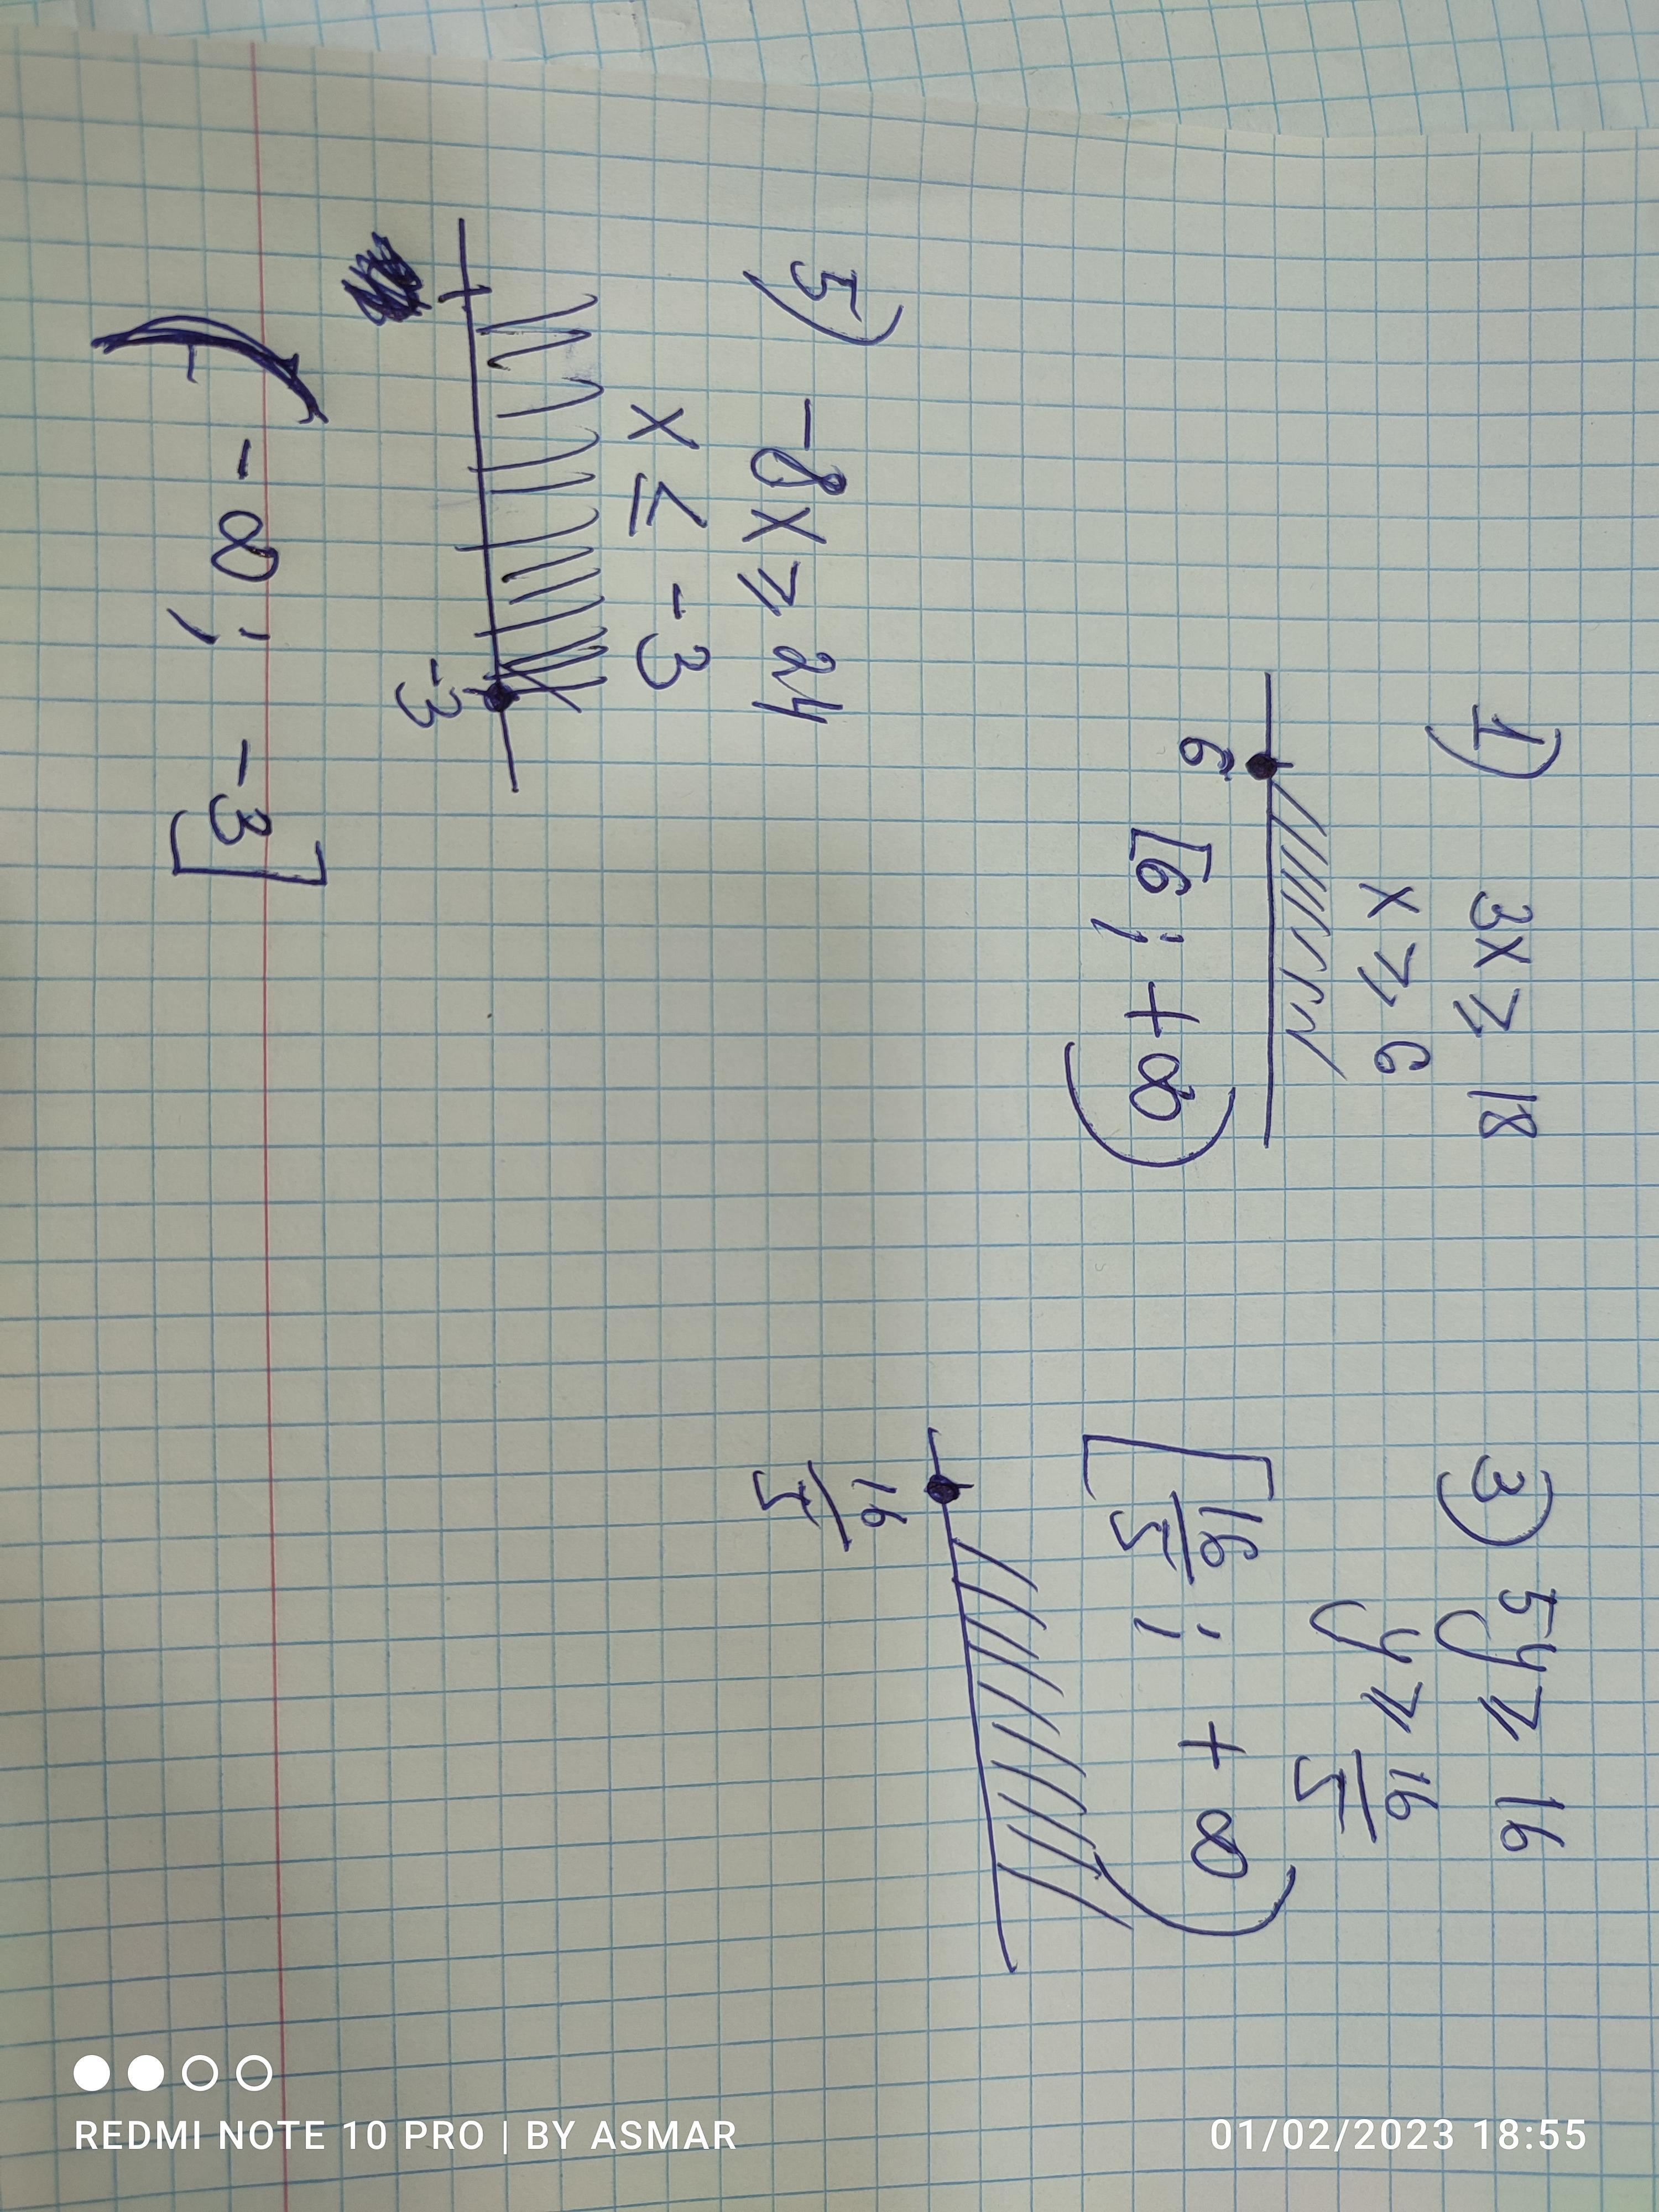 1) 3x ⩾ 18
x ⩾ 6
6
[6; +∞)
3) 5y ⩾ 16
y ⩾ 16/5
[16/5; +∞)
16/5
5) -8x ⩾ 24
x ≤ -3
-3
(-∞; -3]
REDMI NOTE 10 PRO | BY ASMAR
01/02/2023 18:55